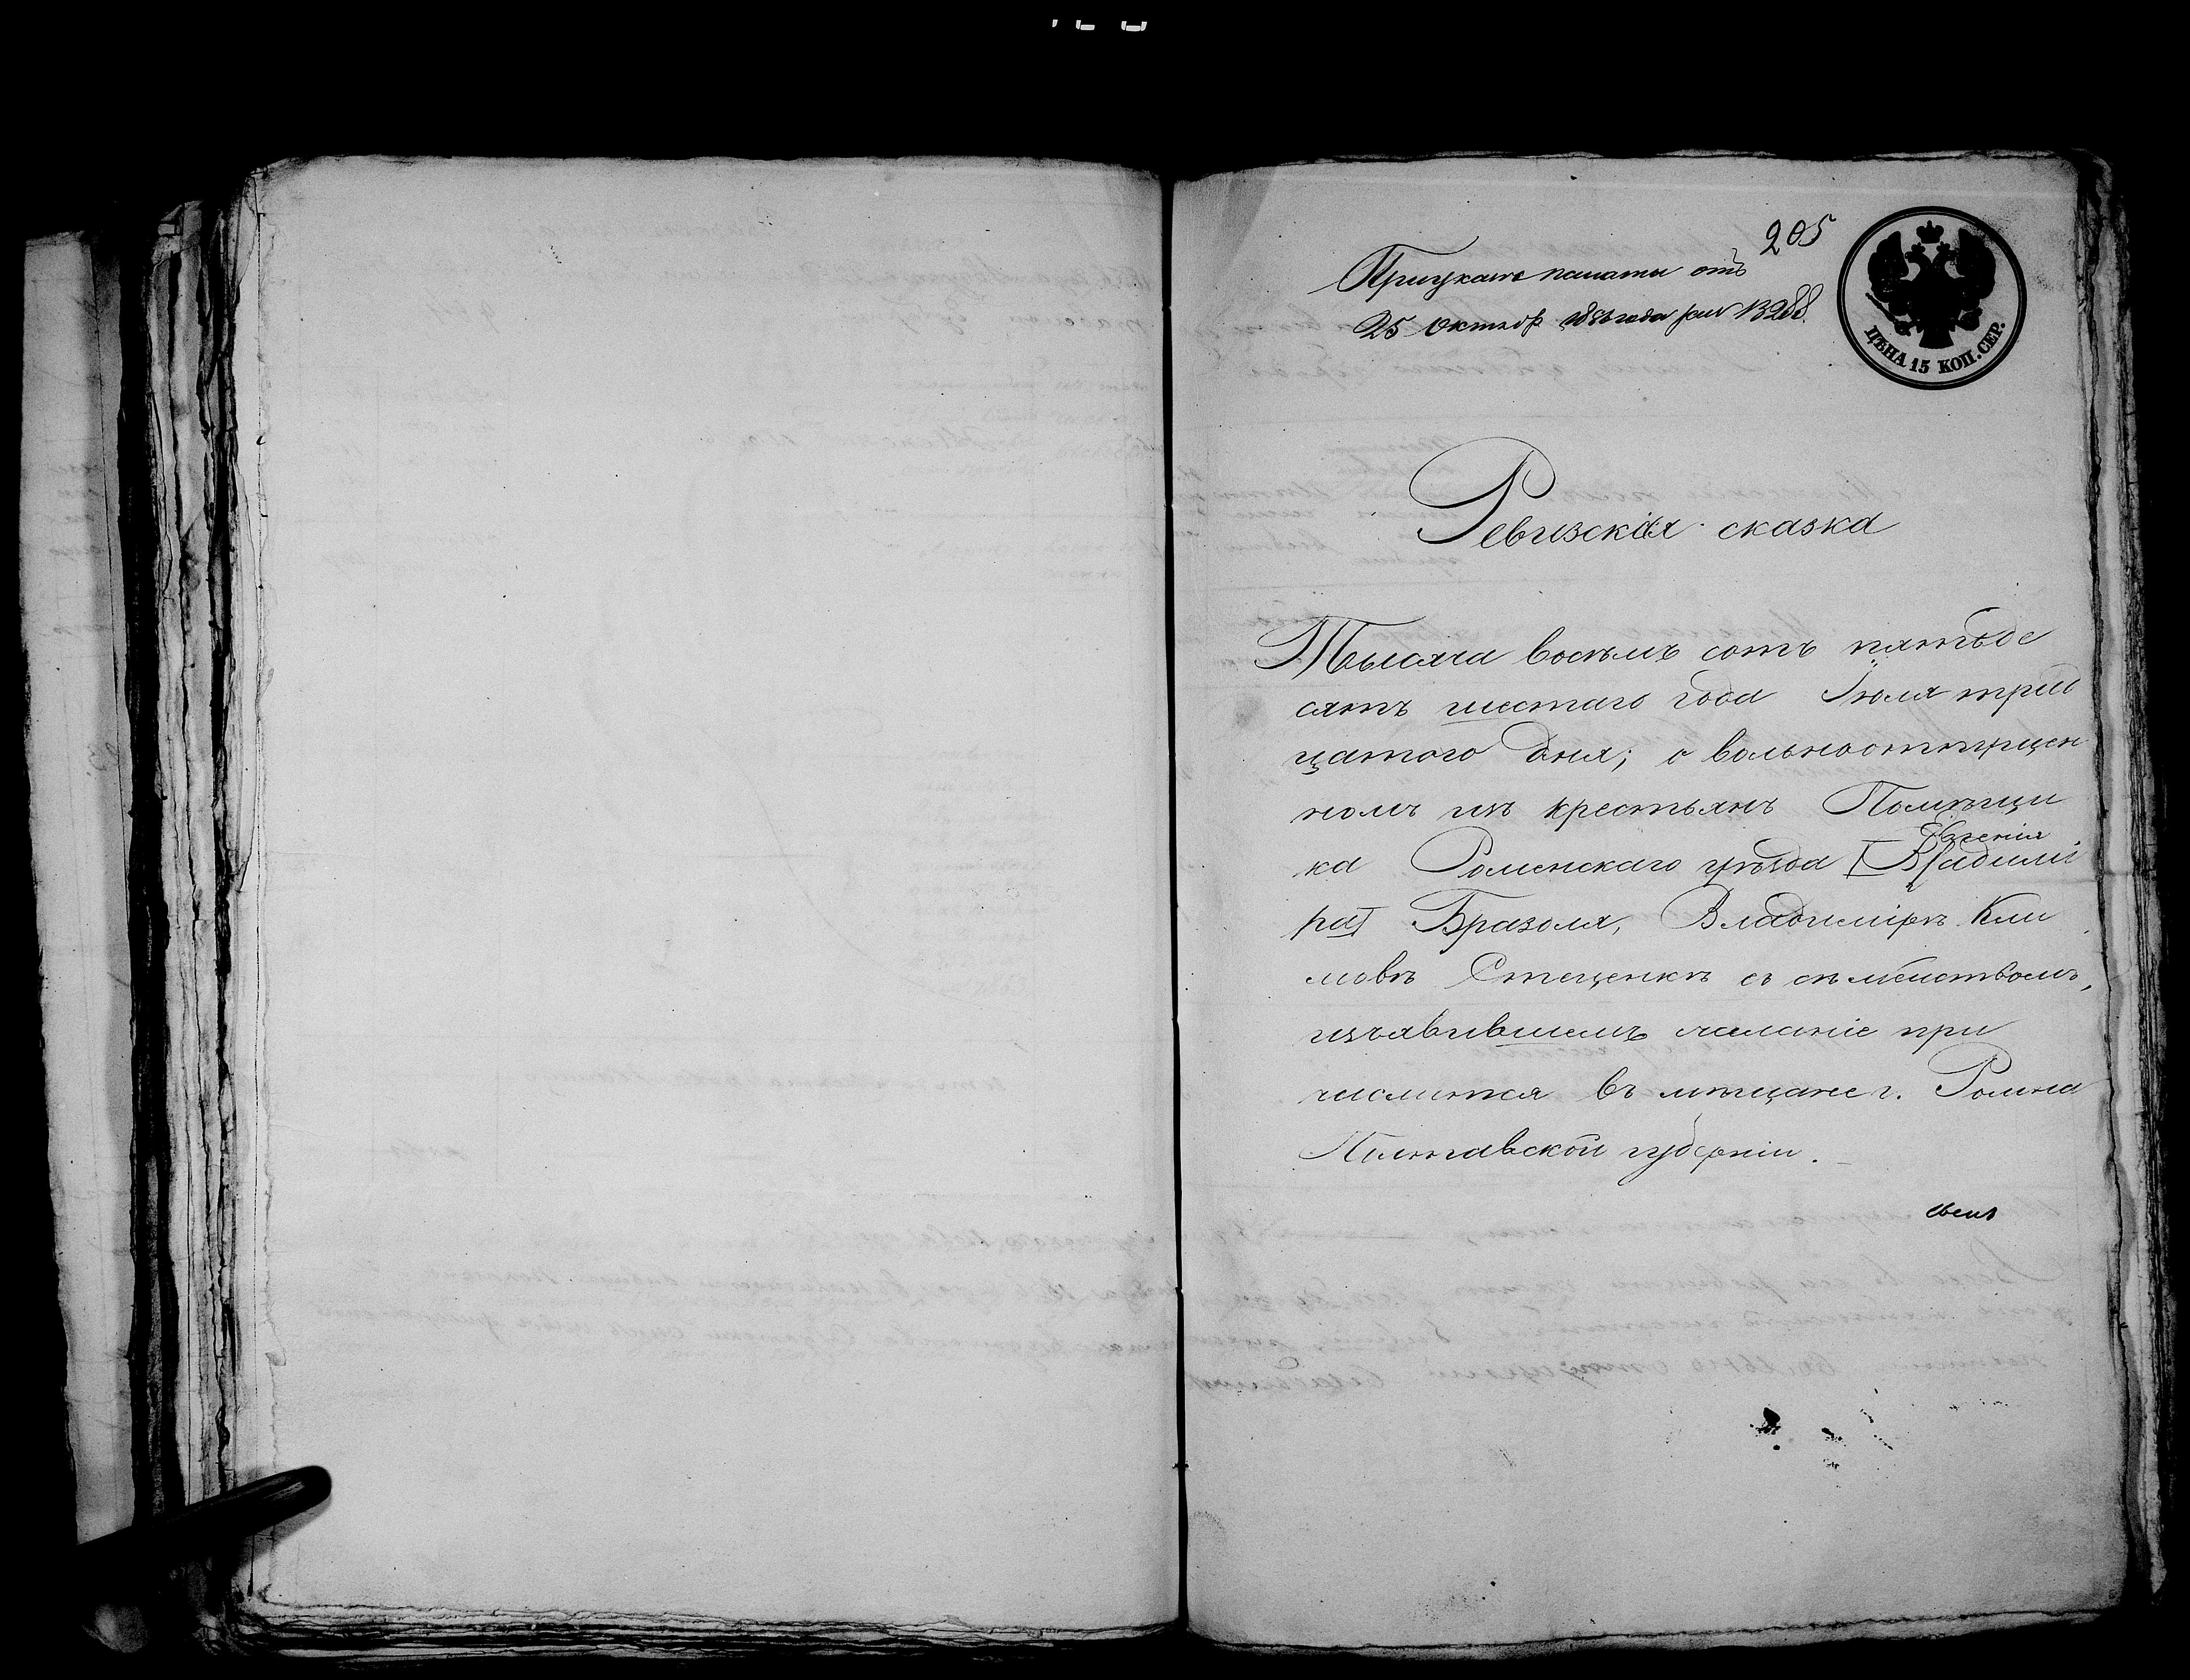 205
При указе палаты отъ
25 Октябр 1856 года за № 13288.
ЦѢНА 15 КОП. СЕР.
Ревизская сказка
Тысяча восемъ сотъ пятьде
сятъ шестаго года Іюля трид
цатого дня; о вольноотпущен
номъ изъ крестьянъ Помѣщи
Евгенія
ка Роменскаго уѣзда [Владимі
ра] Бразоля, Владимірѣ Кли
мовѣ Стеценкѣ съ семействомъ,
изъявившемъ желаніе при
числится въ мѣщане г. Ромна
Полтавской губерніи.